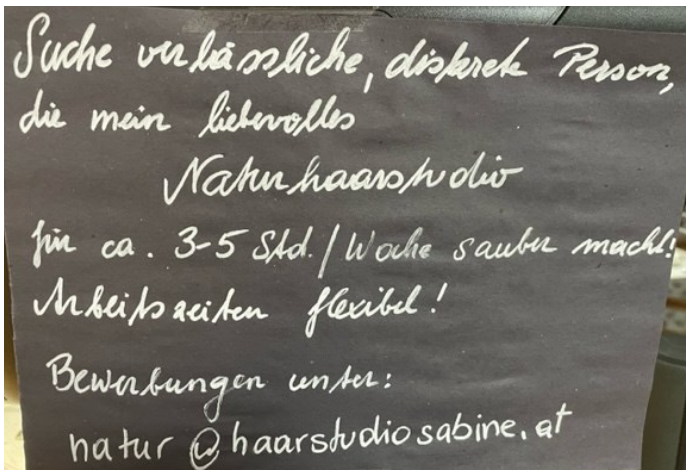 Suche verlässliche, diskrete Person,
die mein liebevolles
Naturhaarstudio
für ca. 3-5 Std./Woche sauber macht!
Arbeitszeiten flexibel!
Bewerbungen unter:
natur@haarstudiosabine.at